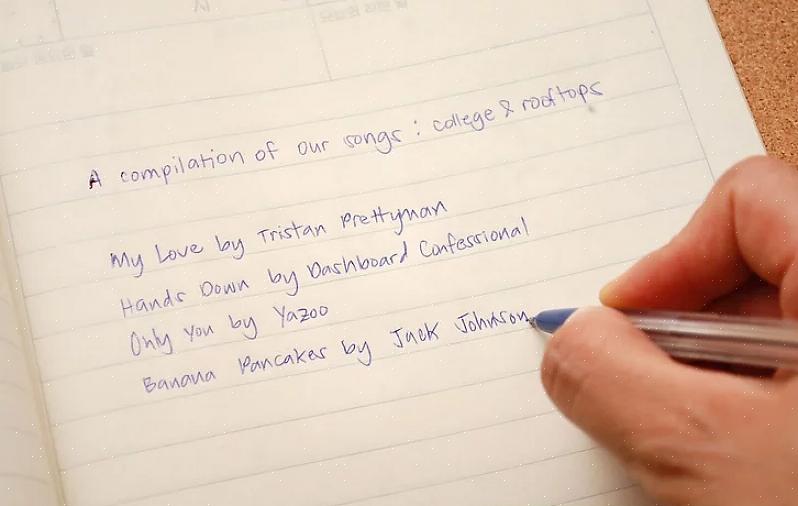 A compilation of our songs : college & rooftops
My Love by Tristan Prettyman
Hands Down by Dashboard Confessional
Only You by Yazoo
Banana Pancakes by Jack Johnson